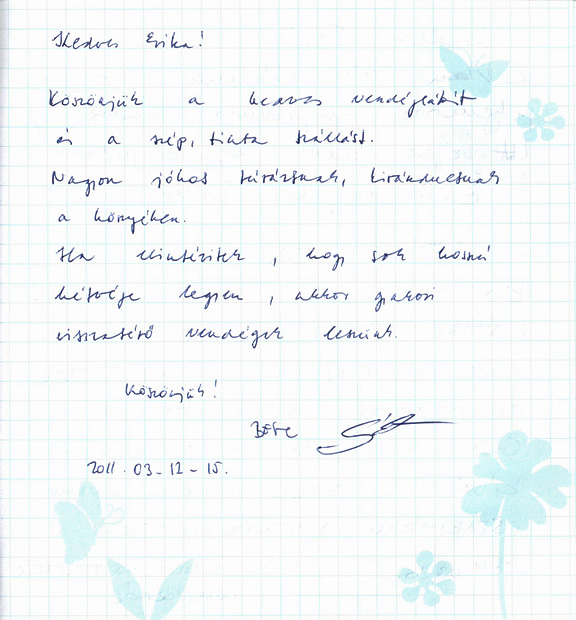 Kedves Erika!
Köszönjük a kedves vendéglátást
és a szép, tiszta szállást.
Nagyon jókat túráztunk, kirándultunk
a környéken.
Ha elintézitek, hogy sok hosszú
hétvége legyen, akkor gyakori
visszatérő vendégek leszünk.
Köszönjük!
2011.03-12-15.